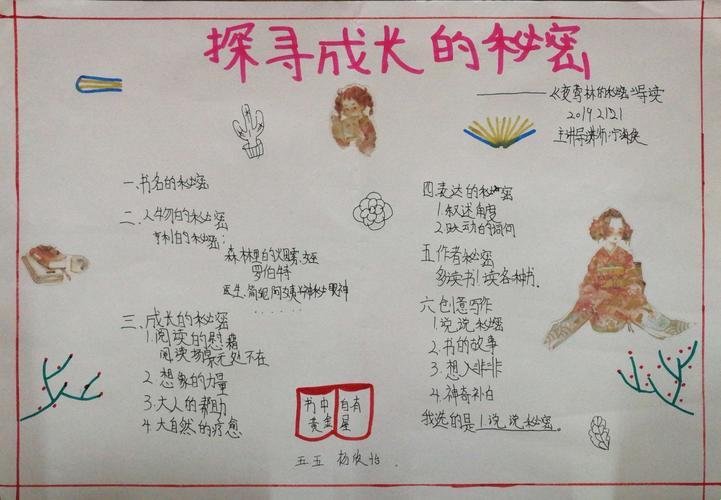 探寻成长的秘密
《夜莺林的秘密》导读
2019 12.21
主讲导读师:宁
一.书名的秘密
二.人物的秘密
亨利的秘密:
森林里的火光、烟雾
罗伯特
医生、简妮
......
三.成长的秘密
1.阅读的慰藉
阅读场景无处不在
2.想象的力量
3.大人的帮助
4.大自然的疗愈
四.表达的秘密
1.叙述角度
2.跃动的词句
五.作者秘密
多读书!读各种书.
六.创意写作
1.说说秘密
2.书的故事
3.想入非非
4.神奇补白
我选的是1.说说秘密.
书中自有
黄金屋
五五 杨俊怡.